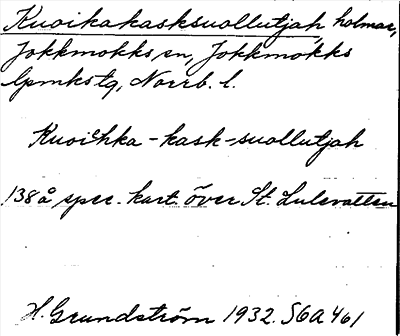 Kuoikakasksuollutjah holmar,
Jokkmokks sn, Jokkmokks
lpmkstg, Norrb. l.
Kuoihka-kask-suollutjah
138 å spec. kart. över St. Lulevatten
H. Grundström 1932. S6A461